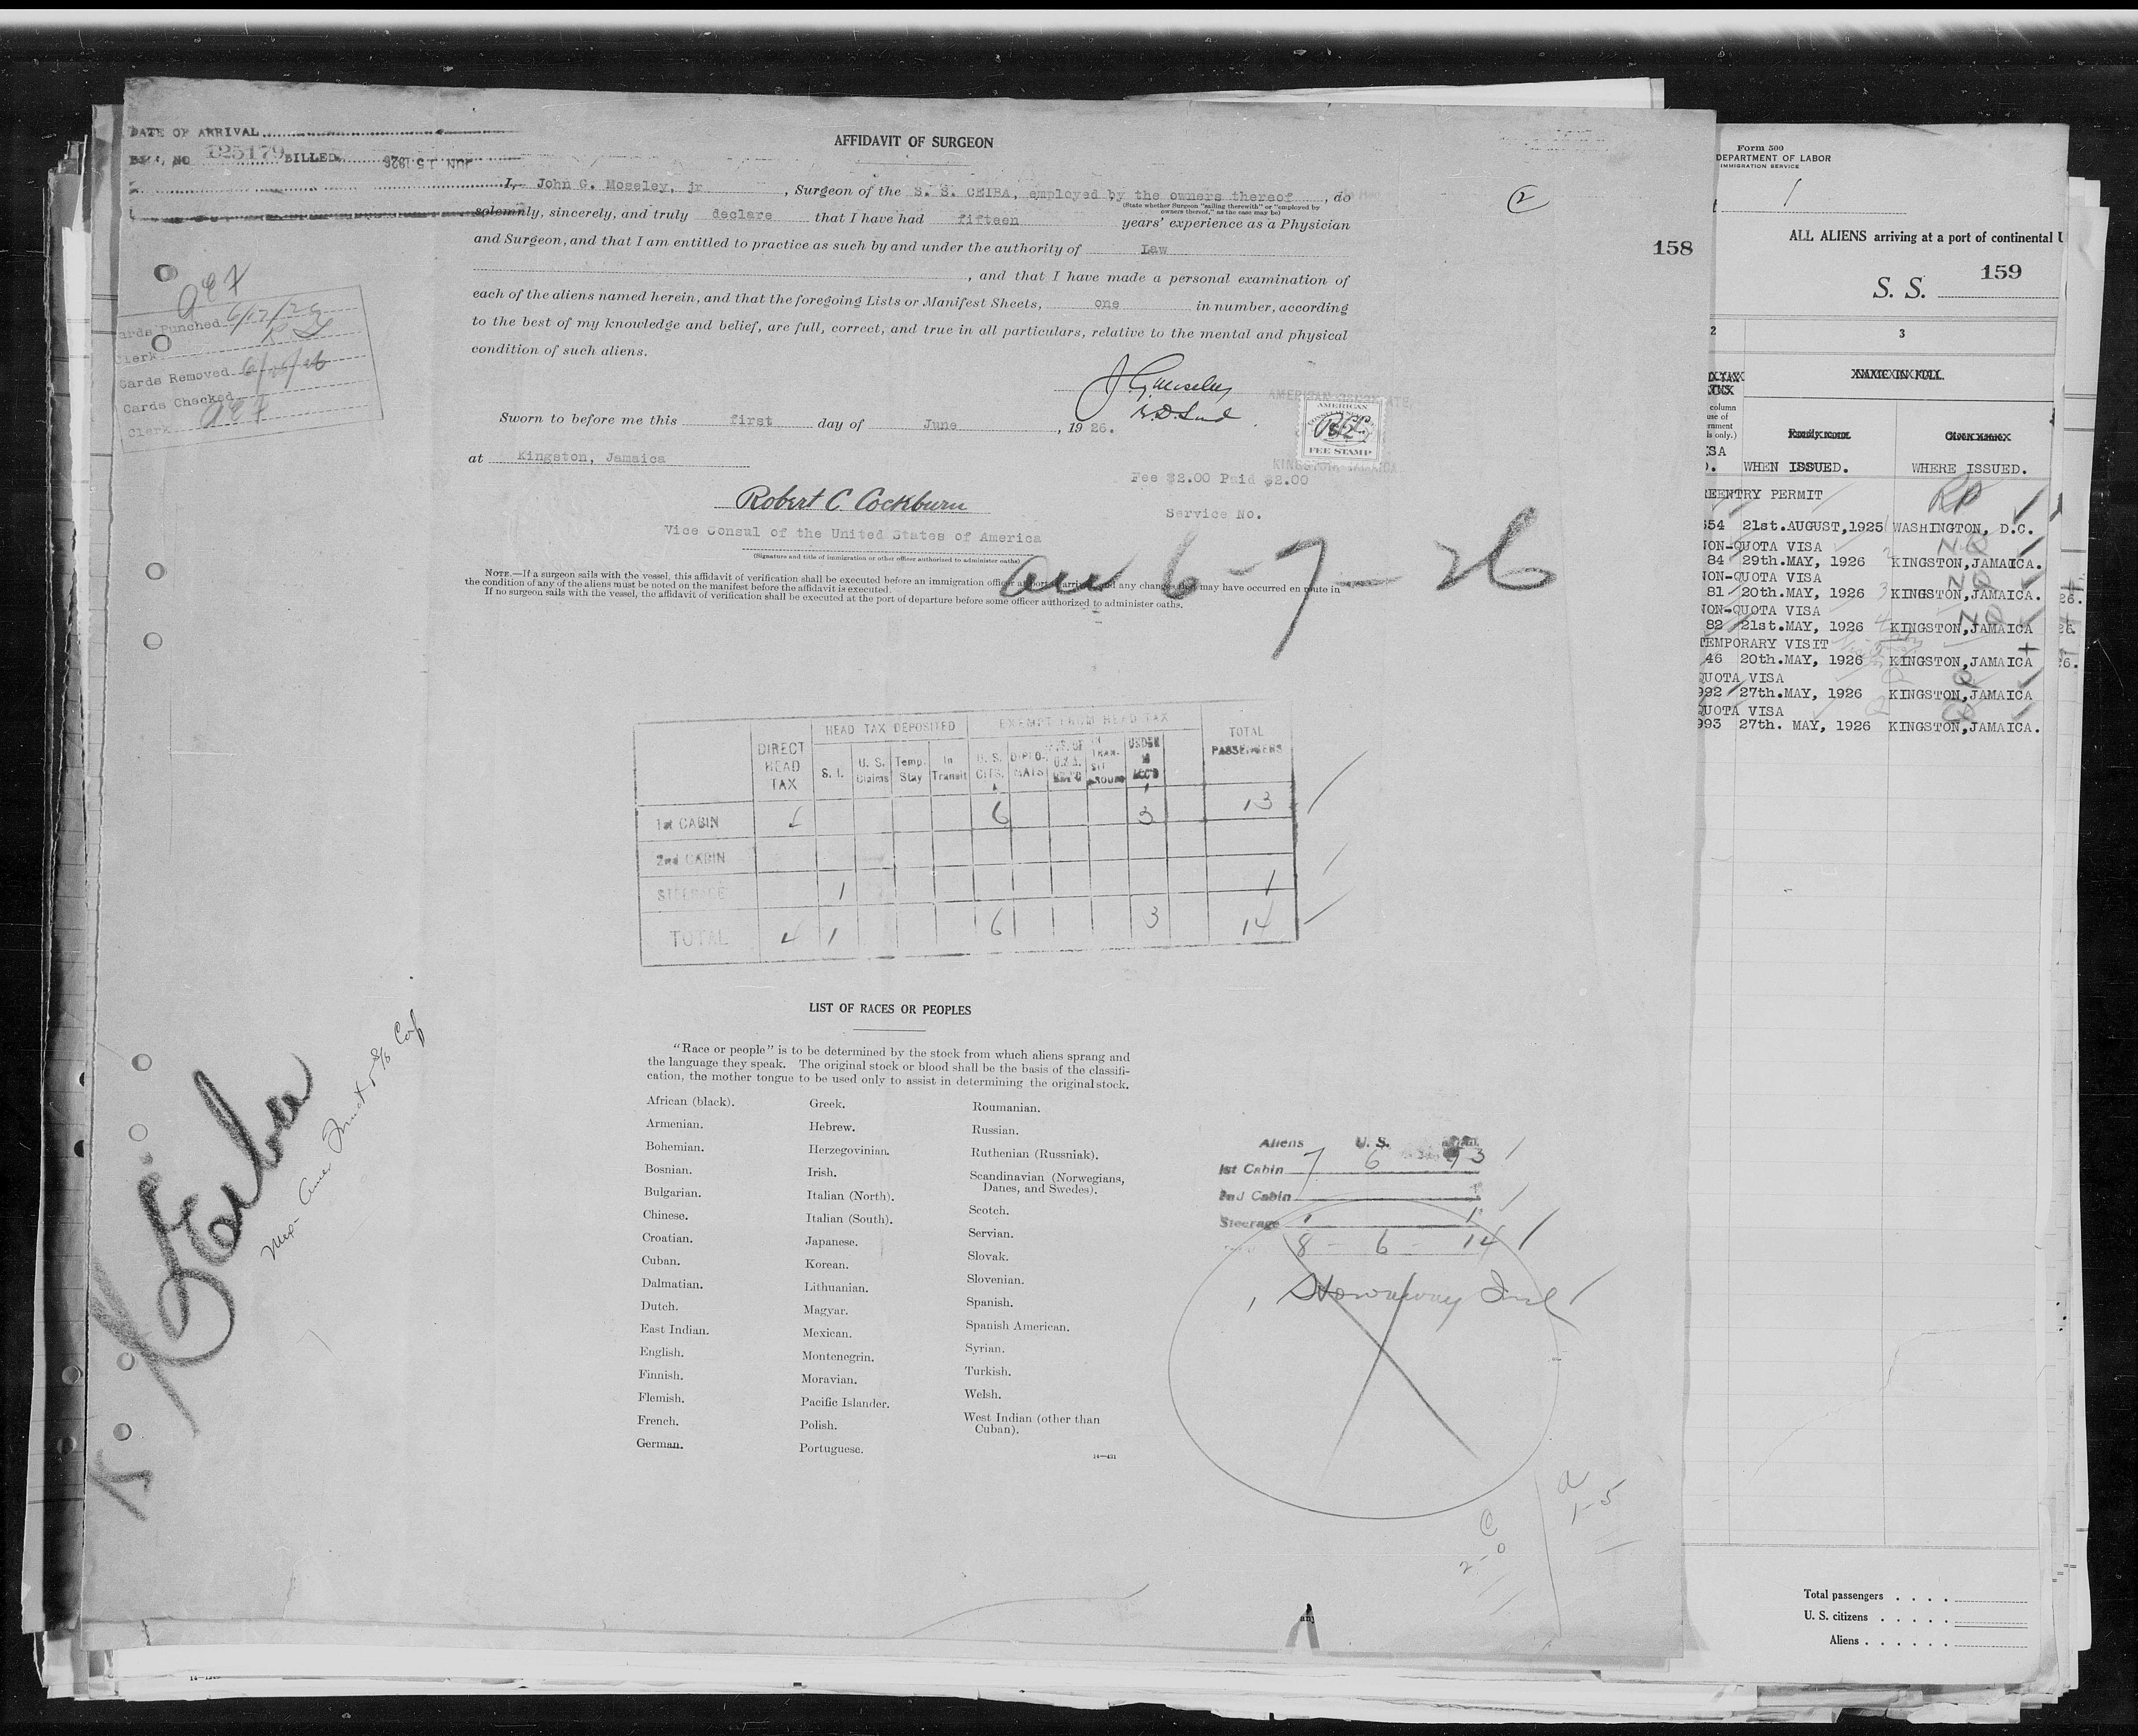 DATE OF ARRIVAL
BILL NO 125179 BILLED JUN 15 1926
AFFIDAVIT OF SURGEON
I, John G. Moseley, jr, Surgeon of the S. S. CEIBA, employed by the owners thereof, do
(State whether Surgeon "sailing therewith" or "employed by
owners thereof," as the case may be)
solemnly, sincerely, and truly declare that I have had fifteen years' experience as a Physician
and Surgeon, and that I am entitled to practice as such by and under the authority of Law
, and that I have made a personal examination of
each of the aliens named herein, and that the foregoing Lists or Manifest Sheets, one in number, according
to the best of my knowledge and belief, are full, correct, and true in all particulars, relative to the mental and physical
condition of such aliens.
2
158
Cards Punched
Clerk
Cards Removed
Cards Checked
Clerk
J G Moseley
Sworn to before me this first day of June, 1926.
at Kingston, Jamaica
AMERICAN CONSULATE
AMERICAN
FEE STAMP
KINGSTON JAMAICA
Fee $2.00 Paid $2.00
Service No.
Robert C. Cockburn
Vice Consul of the United States of America
(Signature and title of immigration or other officer authorized to administer oaths)
6-7-26
NOTE.—If a surgeon sails with the vessel, this affidavit of verification shall be executed before an immigration officer at port of arrival, and any changes that may have occurred en route in
the condition of any of the aliens must be noted on the manifest before the affidavit is executed.
If no surgeon sails with the vessel, the affidavit of verification shall be executed at the port of departure before some officer authorized to administer oaths.
HEAD TAX DEPOSITED EXEMPT FROM HEAD TAX
DIRECT HEAD TAX S. I. U. S. Claims Temp. Stay In Transit U. S. CITS. DIPLO-MATS UNDER 16 ACC'D TOTAL PASSENGERS
1st CABIN 6 3 13
2nd CABIN
STEERAGE 1 1
TOTAL 4 1 6 3 14
LIST OF RACES OR PEOPLES
"Race or people" is to be determined by the stock from which aliens sprang and
the language they speak. The original stock or blood shall be the basis of the classifi-
cation, the mother tongue to be used only to assist in determining the original stock.
African (black).
Armenian.
Bohemian.
Bosnian.
Bulgarian.
Chinese.
Croatian.
Cuban.
Dalmatian.
Dutch.
East Indian.
English.
Finnish.
Flemish.
French.
German.
Greek.
Hebrew.
Herzegovinian.
Irish.
Italian (North).
Italian (South).
Japanese.
Korean.
Lithuanian.
Magyar.
Mexican.
Montenegrin.
Moravian.
Pacific Islander.
Polish.
Portuguese.
Roumanian.
Russian.
Ruthenian (Russniak).
Scandinavian (Norwegians,
Danes, and Swedes).
Scotch.
Servian.
Slovak.
Slovenian.
Spanish.
Spanish American.
Syrian.
Turkish.
Welsh.
West Indian (other than
Cuban).
14—431
Aliens U. S.
1st Cabin 7 6 13
2nd Cabin
Steerage 1 1
8 - 6 - 14
1 Stowaway Incl
Ceiba
Form 500
DEPARTMENT OF LABOR
IMMIGRATION SERVICE
1
ALL ALIENS arriving at a port of continental U
S. S. 159
2 3
NAME IN FULL
column
use of
ernment
ls only.)
Family name Given name
WHEN ISSUED. WHERE ISSUED.
REENTRY PERMIT RP
554 21st.AUGUST,1925 WASHINGTON, D.C.
NON-QUOTA VISA NQ
84 29th.MAY, 1926 KINGSTON,JAMAICA.
NON-QUOTA VISA NQ
81 20th.MAY, 1926 KINGSTON,JAMAICA.
NON-QUOTA VISA NQ
82 21st.MAY, 1926 KINGSTON,JAMAICA
TEMPORARY VISIT
46 20th.MAY, 1926 KINGSTON,JAMAICA
QUOTA VISA
992 27th.MAY, 1926 KINGSTON,JAMAICA
QUOTA VISA
993 27th. MAY, 1926 KINGSTON,JAMAICA.
Total passengers
U. S. citizens
Aliens